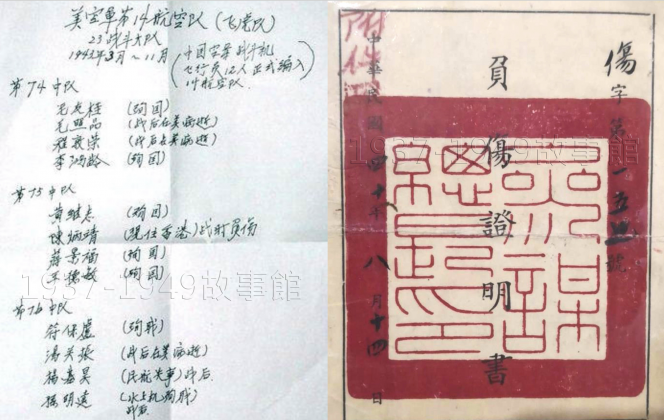 美空軍第14航空队(飞虎队)
23战斗大队
1943年3月~11月
(中国空軍战斗机
飞行员12人正式編入
14航空队)
第74中队
毛友桂 (殉国)
毛昭品 (战后在美病逝)
程敦荣 (战后在美病逝)
李鸿龄 (殉国)
第75中队
黄继志 (殉国)
陳炳靖 (现住香港)战时员伤
蔣景福 (殉国)
王德敏 (殉国)
第76中队
符保盧 (殉职)
湯关振 (战后在美病逝)
楊嘉昊 (民航失事)战后
楊明遠
1937-1949故事館
傷字第一五
號
負傷證明書
中華民國四十
年八月十四日
附件
參謀總長之印
1937-1949故事館